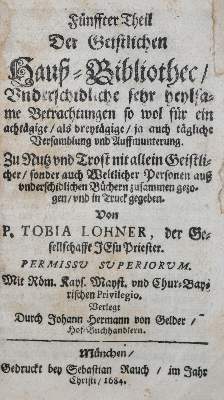 Fünffter Theil
Der Geistlichen
Hauß-Bibliothec/
Vnderschidliche sehr heylsa-
me Betrachtungen so wol für ein
achtägige/als dreytägige/ja auch tägliche
Versamblung vnd Auffmunterung.
Zu Nutz vnd Trost nit allein Geistli-
cher/sonder auch Weltlicher Personen auß
vnderschidlichen Büchern zusammen gezo-
gen/vnd in Truck gegeben.
Von
P. TOBIA LOHNER, der Ge-
sellschafft JEsu Priester.
PERMISSU SUPERIORUM.
Mit Röm. Kays. Mayst. vnd Chur-Bay-
rischen Privilegio.
Verlegt
Durch Johann Hermann von Gelder/
Hof-Buchhandlern.
München/
Gedruckt bey Sebastian Rauch/im Jahr
Christi/1684.